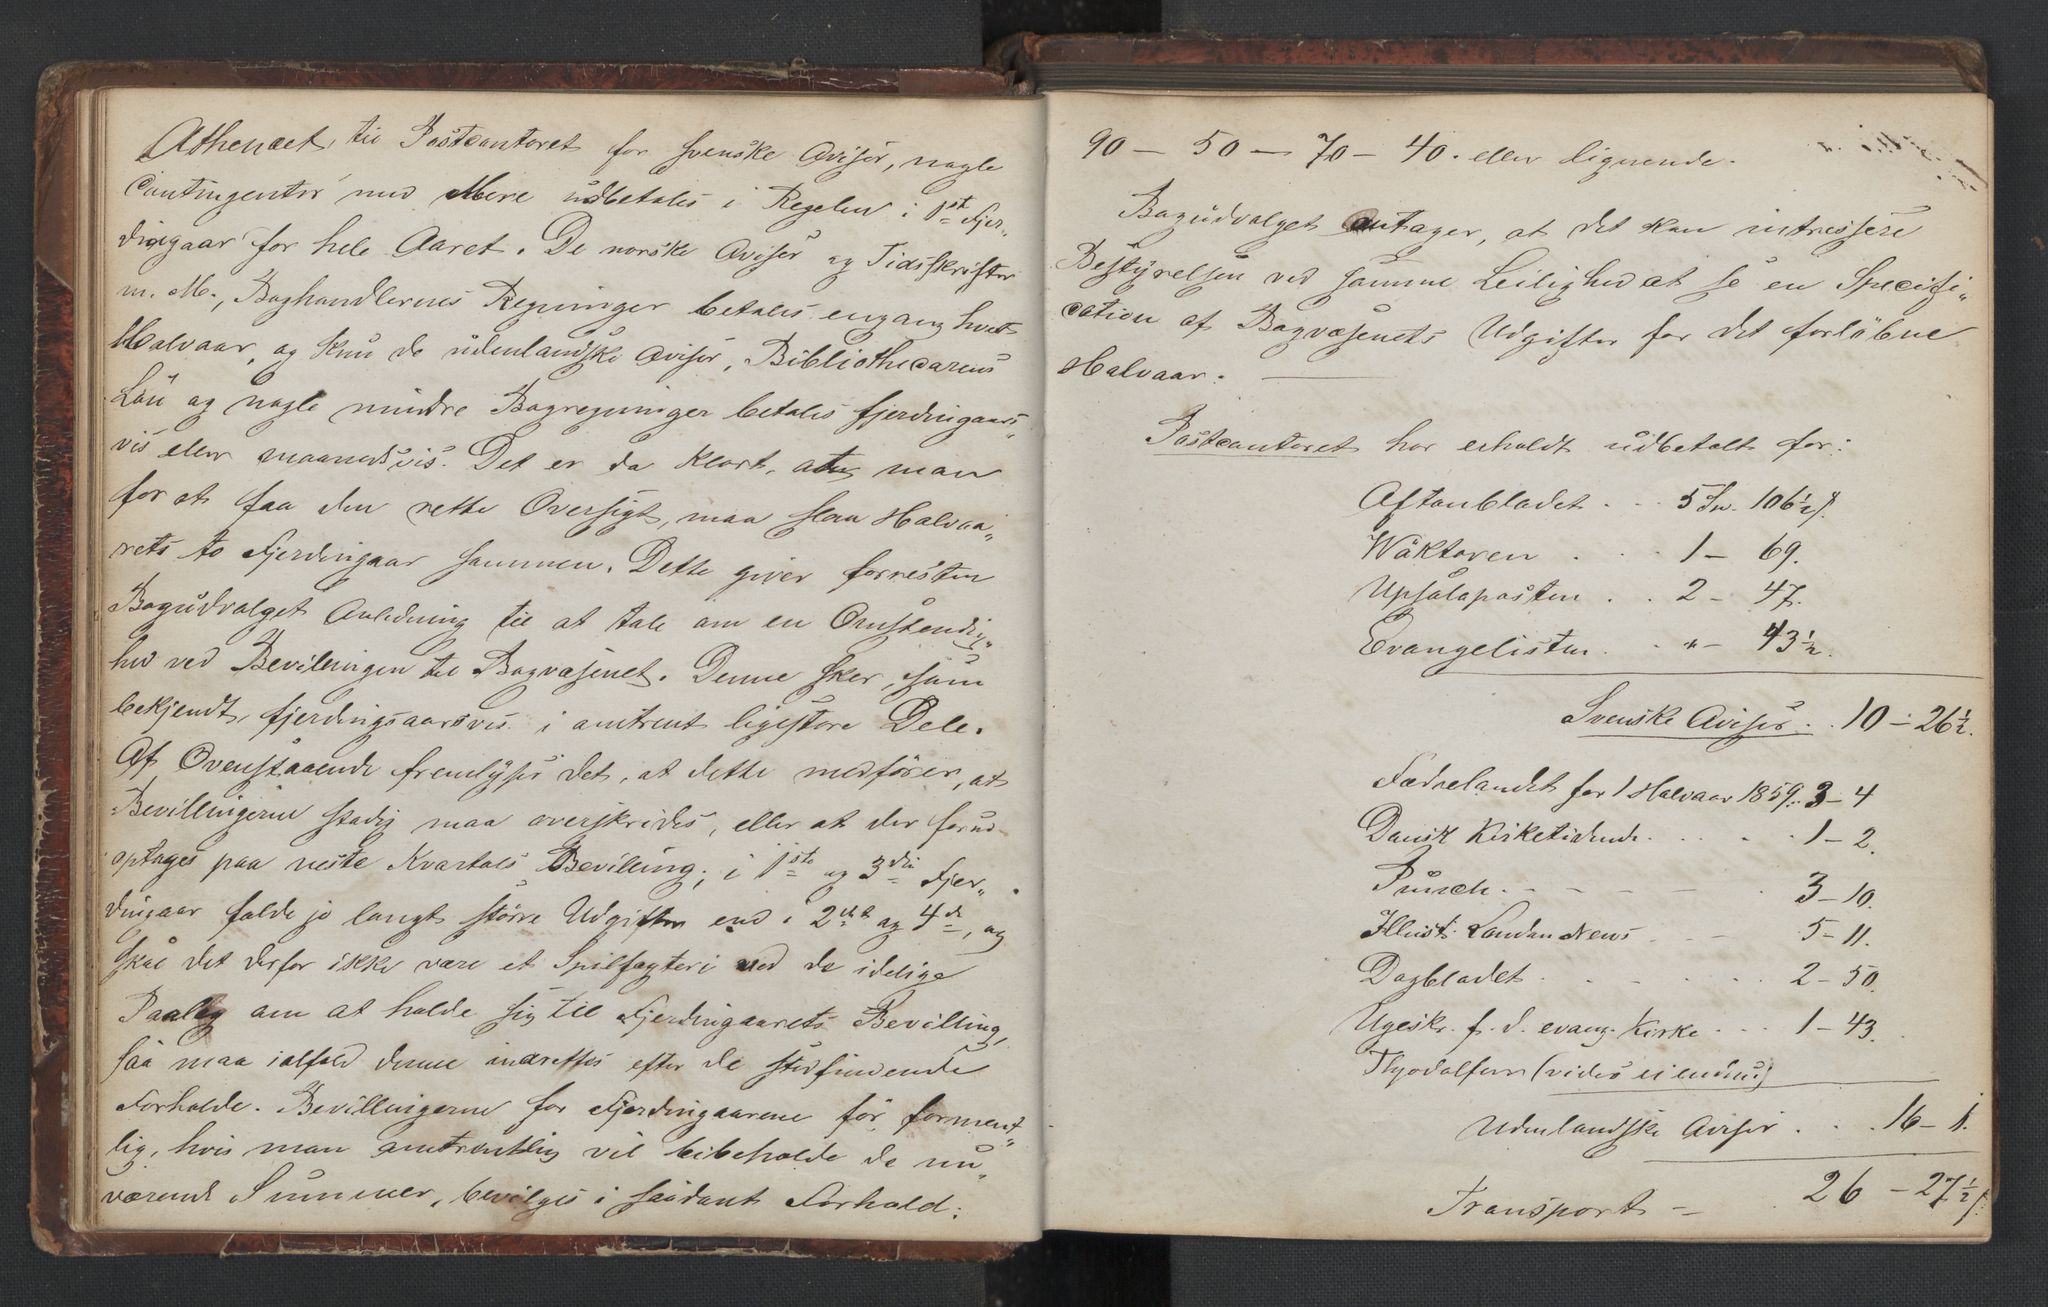 Athenæet, til Postcontoret for svenske Aviser, nogle
Contingenter med Mere udbetales i Regelen i 1st Fjer„
dingaar for hele Aaret. De norske Aviser og Tidsskrifter
m. M., Boghandlernes Regninger betales engang hvert
Halvaar, og kun de udenlandske Aviser, Bibliothecarens
Løn og nogle mindre Bogregninger betales fjerdingaars„
vis eller maanedsvis. Det er da klart, at man
for at faa den rette Oversigt, maa slaa Halvaa„
rets to Fjerdingaar sammen. Dette giver forresten
Bogudvalget Anledning til at tale om en Omstendig„
hed ved Bevilningen til Bogvæsenet. Denne sker, som
bekjendt, fjerdingsaarsvis i omtrent ligestore Dele.
Af Ovenstaaende fremlyser det, at dette medfører, at
Bevillingerne stadig maa overskrides, eller at der forud
optages paa neste Kvartals Bevilling; i 1ste og 3die Fjer„
dingaar falde jo langt større Udgifter end i 2det og 4de, og
skal det derfor ikke være et Spilfegteri med de idelige
Paalæg om at holde sig til Fjerdingaarets Bevilling,
saa maa ialfald denne indrettes efter de stedfindende
Forholde. Bevillingerne for Fjerdingaarene bør forment„
lig, hvis man omtrentlig vil beibeholde de nu„
værende Summer, bevilges i saadant Forhold:
90 — 50 — 70 — 40. eller lignende.
Bogudvalget antager, at det kan intressere
Bestyrelsen ved samme Leilighed at se en Specifi„
cation af Bogvæsenets Udgifter for det forløbne
Halvaar:
Postcontoret har erholdt udbetalt for:
Aftonbladet . . . 5 Sp. 106½ s.
Wäktaren . . . 1 — 69.
Upsalaposten . . 2 — 47.
Evangelisten . . " — 43½.
Svenske Aviser . . 10 — 26½.
Fædrelandet for 1 Halvaar 1859 . . 3 — 4
Dansk Kirketidende . . . . 1 — 2.
Punch . - - - - 3 — 10.
Illust. London News . . . 5 — 11.
Dagbladet . . . . . 2 — 50.
Ugeskr. f. d. evang. Kirke . . . 1 — 43.
(vides ei endnu)
Udenlandske Aviser . . . 16 — 1.
Transport — 26 — 27½ s.